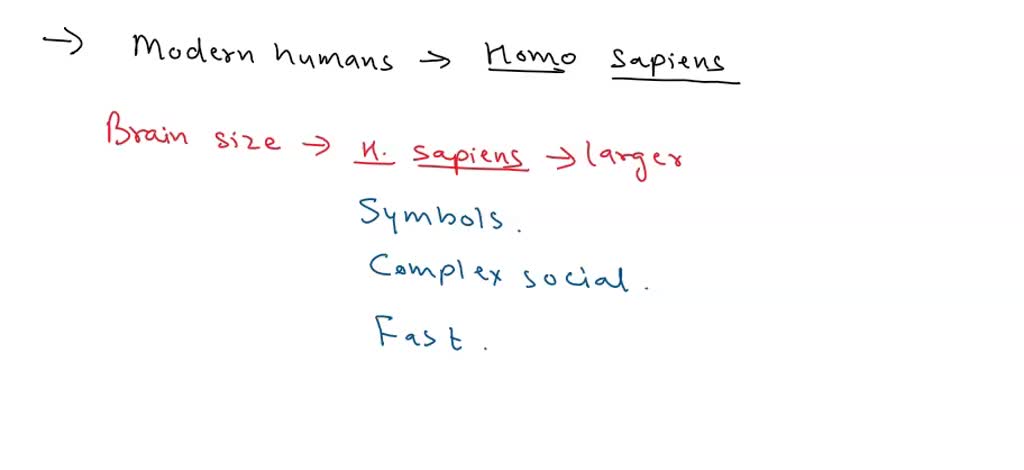 → Modern humans → Homo Sapiens
Brain size → H. sapiens → larger
Symbols.
Complex social.
Fast.